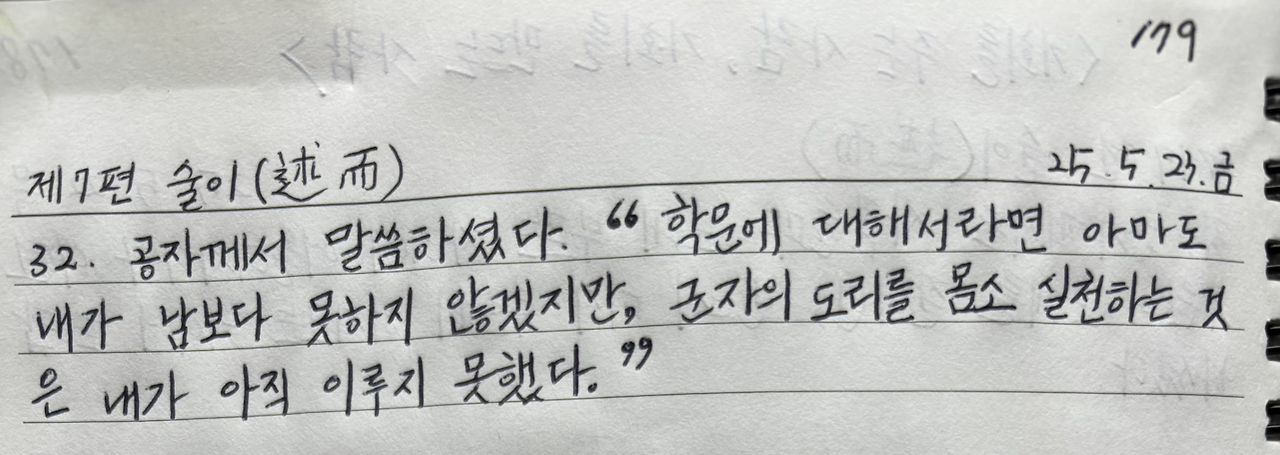 179
제7편 술이(述而) 25.5.23.금
32. 공자께서 말씀하셨다. "학문에 대해서라면 아마도
내가 남보다 못하지 않겠지만, 군자의 도리를 몸소 실천하는 것
은 내가 아직 이루지 못했다."